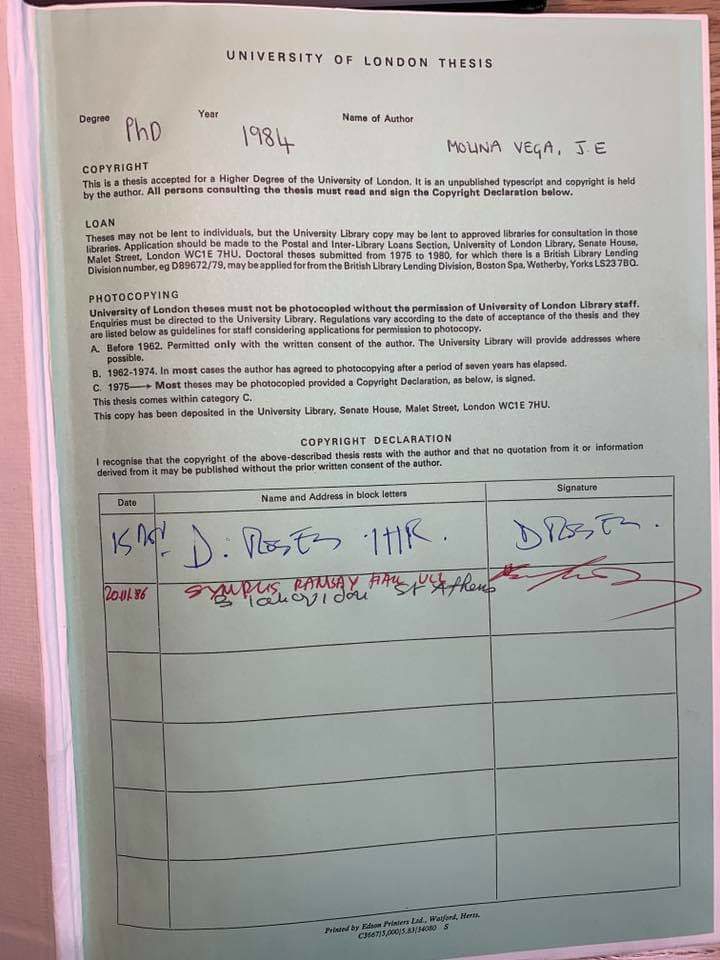 UNIVERSITY OF LONDON THESIS
Degree PhD Year 1984 Name of Author MOLINA VEGA, J.E
COPYRIGHT
This is a thesis accepted for a Higher Degree of the University of London. It is an unpublished typescript and copyright is held
by the author. All persons consulting the thesis must read and sign the Copyright Declaration below.
LOAN
Theses may not be lent to individuals, but the University Library copy may be lent to approved libraries for consultation in those
libraries. Application should be made to the Postal and Inter-Library Loans Section, University of London Library, Senate House,
Malet Street, London WC1E 7HU. Doctoral theses submitted from 1975 to 1980, for which there is a British Library Lending
Division number, eg D89672/79, may be applied for from the British Library Lending Division, Boston Spa, Wetherby, Yorks LS23 7BQ.
PHOTOCOPYING
University of London theses must not be photocopied without the permission of University of London Library staff.
Enquiries must be directed to the University Library. Regulations vary according to the date of acceptance of the thesis and they
are listed below as guidelines for staff considering applications for permission to photocopy.
A. Before 1962. Permitted only with the written consent of the author. The University Library will provide addresses where
possible.
B. 1962-1974. In most cases the author has agreed to photocopying after a period of seven years has elapsed.
C. 1975→ Most theses may be photocopied provided a Copyright Declaration, as below, is signed.
This thesis comes within category C.
This copy has been deposited in the University Library, Senate House, Malet Street, London WC1E 7HU.
COPYRIGHT DECLARATION
I recognise that the copyright of the above-described thesis rests with the author and that no quotation from it or information
derived from it may be published without the prior written consent of the author.
Date Name and Address in block letters Signature
D. IHR. D
20.11.86 RAMSAY HALL UCL
St Athens
Printed by Edson Printers Ltd., Watford, Herts.
C3667/5,000/5.83/34080 S